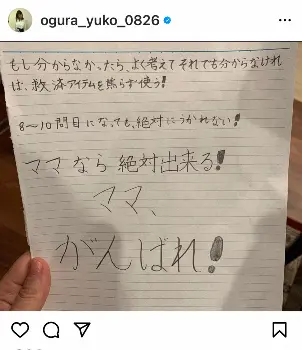 ogura_yuko_0826
もし分からなかったら、よく考えて それでも分からなければ
ば、救済アイテムを焦らず使う!
8〜10問目になっても、絶対につかれない!
ママなら絶対出来る!
ママ、
がんばれ!